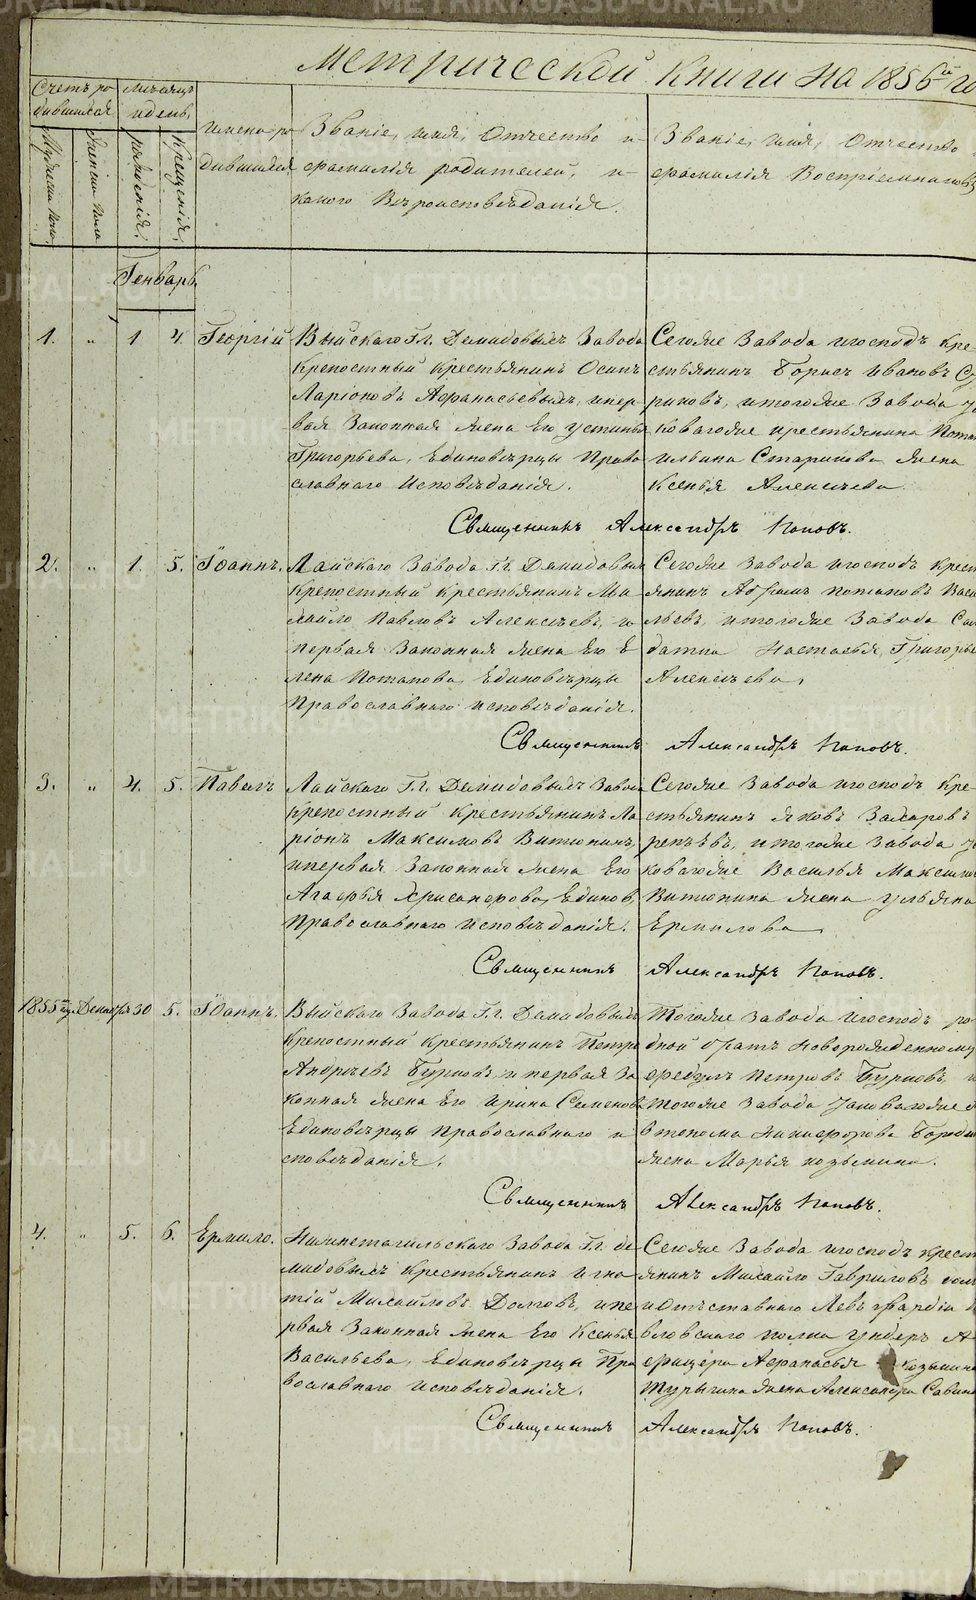 METRIKI.GASO-URAL.RU
Метрической Книги на 1856й го
Счетъ ро дившихся
Месяцъ и день
Мужеска пола
Женска пола
рожденія
Крещенія
Имена ро дившихся
Званіе, имя, Отчество и фамилія родителей, и какого Вѣроисповѣданія.
Званіе, Имя, Отчество фамилія Воспріемниковъ
Генварь
1. „ 1 4. Георгій
Выйскаго Гг. Демидовыхъ Завода
Крепостный Крестьянинъ Осипъ
Ларіоновъ Афанасьевыхъ, и пер
вая Законная жена Его Устинья
Григорьева, Единовѣрцы Право
славнаго Исповѣданія.
Сегоже Завода игосподъ Кре
стьянинъ Борисъ Ивановъ
риковъ, итогоже Завода
коваго же крестьянина Пота
Ильина Старикова жена
Ксенья Алексѣева
Священникъ Александръ Поповъ.
2. „ 1. 5. Іоаннъ.
Лайскаго Завода Гг. Демидовыхъ
Крепостный Крестьянинъ Ми
хайло Павловъ Алексѣевъ, и
первая Законная жена Его Е
лена Потапова, Единовѣрцы
Православнаго исповѣданія.
Сегоже Завода игосподъ Крест
янинъ Абрамъ Потаповъ Васи
льевъ, итогоже Завода Сол
датка Настасья Григорье
Алексѣева,
Священникъ Александръ Поповъ.
3. „ 4. 5. Павелъ
Лайскаго Гг. Демидовыхъ Завода
Крепостный Крестьянинъ Ла
ріонъ Максимовъ Витюнинъ,
и первая Законная жена Его
Агафья Хрисанфова, Единов.
Православнаго исповѣданія.
Сегоже Завода игосподъ Кре
стьянинъ Яковъ Захаровъ
репѣевъ, итогоже Завода
коваго же Василья Максимо
Витюнина жена Ульяна
Ермилова
Священникъ Александръ Поповъ.
1855го Декабря 30 5. Іоаннъ.
Выйскаго Завода Гг. Демидовыхъ
Крепостный Крестьянинъ Петръ
Андрѣевъ Бурковъ и первая За
конная жена Его Ирина Семенова
Единовѣрцы Православнаго и
сповѣданія.
Тогоже Завода игосподъ ро
дной братъ новорожденному
Петровъ Бурковъ,
Тогоже Завода
Никифорова
жена Марья Козьмина.
Священникъ Александръ Поповъ.
4. „ 5. 6. Ермило.
Нижнетагильскаго Завода Гг. Де
мидовыхъ Крестьянинъ Игна
тій Михайловъ Долговъ, и пе
рвая Законная жена Его Ксенья
Васильева, Единовѣрцы Пра
вославнаго исповѣданія.
Сегоже Завода игосподъ Крест
янинъ Михайло Гавриловъ
и отъставнаго Левъ гвардіи
вловскаго полка Ундеръ
фицера Афанасья Козьмина
Турыгина жена Александра Савин
Священникъ Александръ Поповъ.